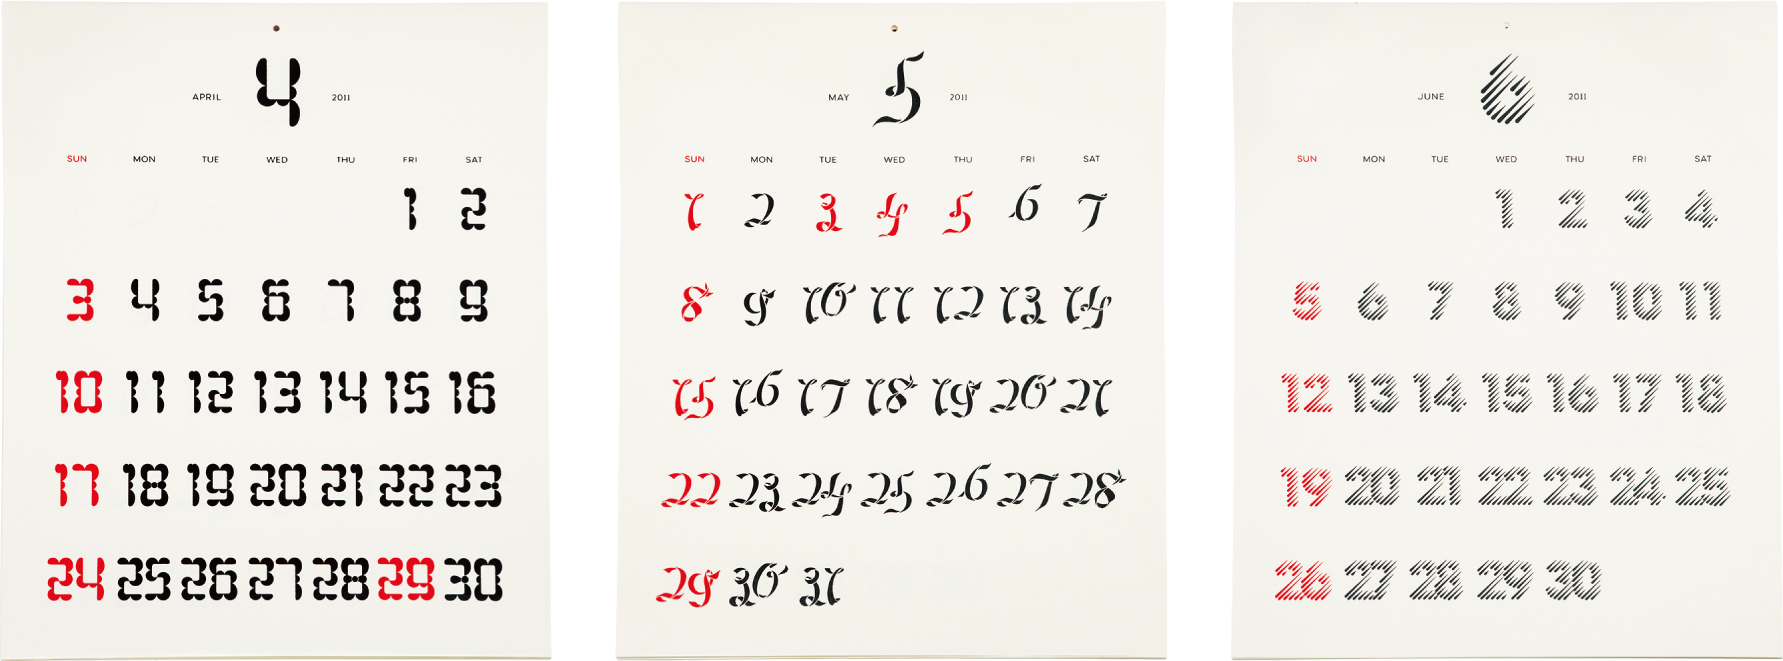 APRIL 4 2011
SUN MON TUE WED THU FRI SAT
1 2
3 4 5 6 7 8 9
10 11 12 13 14 15 16
17 18 19 20 21 22 23
24 25 26 27 28 29 30
MAY 5 2011
SUN MON TUE WED THU FRI SAT
1 2 3 4 5 6 7
8 9 10 11 12 13 14
15 16 17 18 19 20 21
22 23 24 25 26 27 28
29 30 31
JUNE 6 2011
SUN MON TUE WED THU FRI SAT
1 2 3 4
5 6 7 8 9 10 11
12 13 14 15 16 17 18
19 20 21 22 23 24 25
26 27 28 29 30